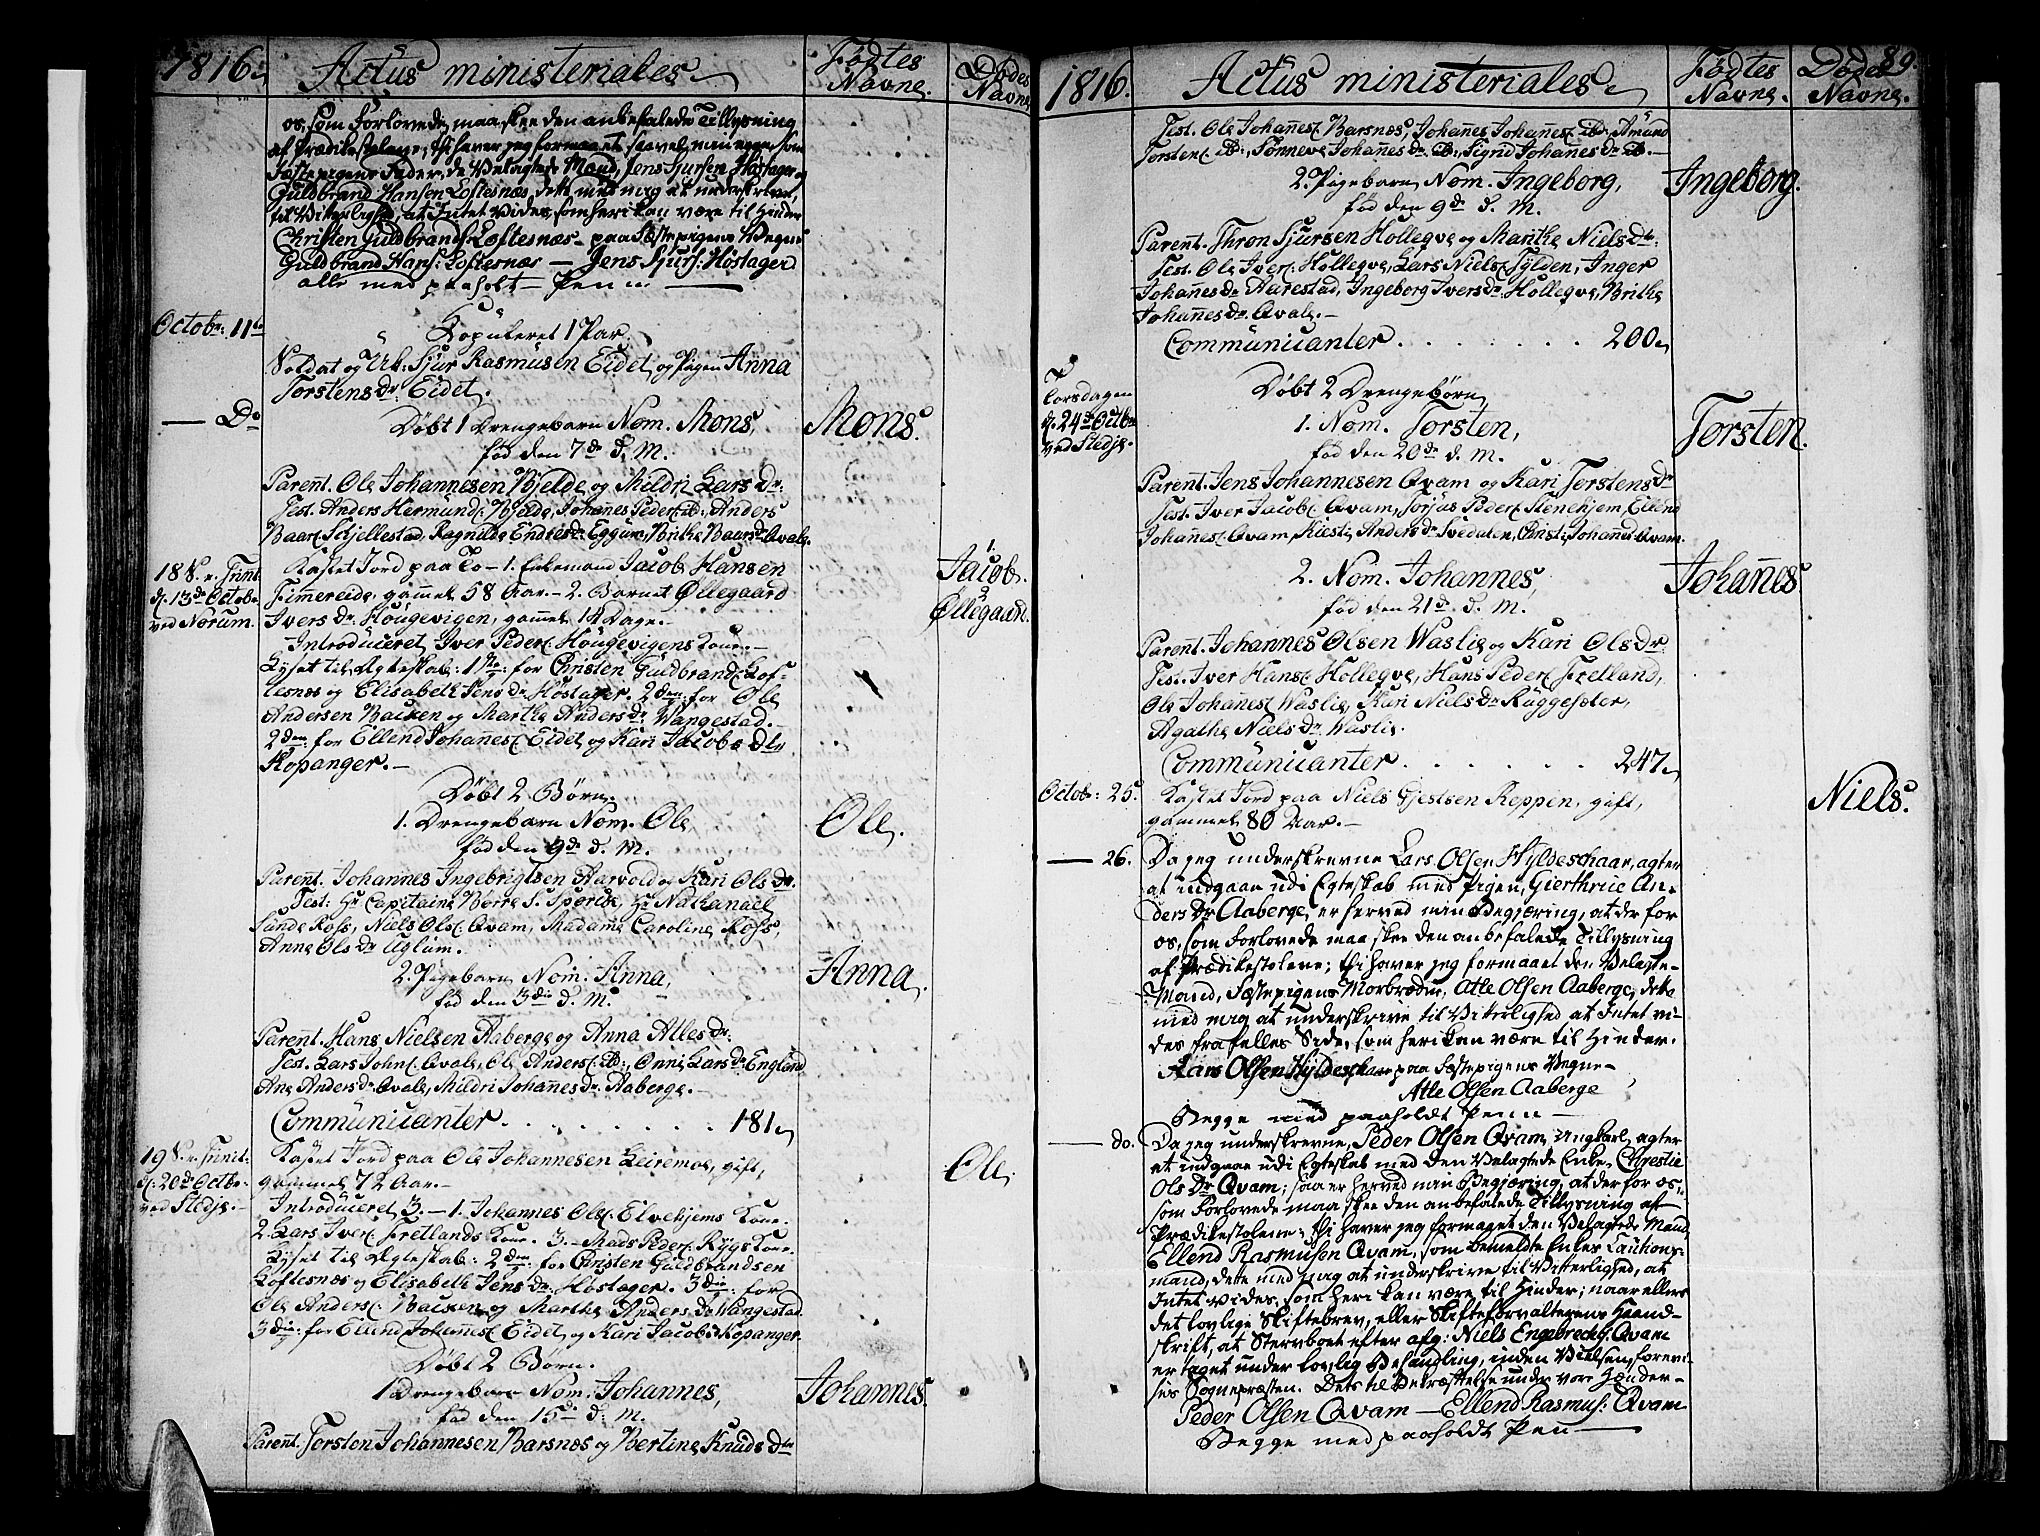 1816. Actus ministeriales. Fødtes Navne. Dødes Navne.
os, som Forlovede, maa skee den anbefalede Tillysning
af Prædikestolene; thi haver jeg formaaet saavel min egen som
Fæstepigens Fader, de Velagte Mænd, Jens Sjursen Høstager og
Guldbrand Hansen Loftesnæs, dette med mig at underskrive,
til Vitterlighed, at Intet vides, som heri kan være til Hinder
Christen Guldbrands: Loftesnæs — paa Fæstepigens Vegne
Guldbrand Hans: Loftesnæs — Jens Sjurs: Høstager
alle med paaholt Pen
Octobr: 11te Copuleret 1 Par.
Soldat og Uk: Sjur Rasmusen Eidet og Pigen Anna
Torstens Dr: Eidet.
— Do Døbt 1 Drengebarn Nom. Mons, Mons.
fød den 7de d. M.
Parent. Ole Johannesen Bjelde og Mildri Lars Dr:
Test. Anders Hermunds: Bjelde, Johanes Peders: ib: Anders
Baars: Skjellestad, Ragnilde Endres Dr: Eggum, Brithe Baars Dr: Qvale.
18 S. e. Trinit. Kastet Jord paa To — 1. Enkemand Jacob Hansen 1. Jacob.
d. 13de Octob. Fimereide, gammel 58 Aar. — 2. Barnet Øllegaard 2. Øllegaard.
ved Norum. Ivers Dr: Hougevigen, gammel 14 Dage. —
Introduceret Iver Peders: Hougevigens Kone. —
Lyset til Ægteskab: 1ste: for Christen Guldbrands: Lof-
tesnæs og Elisabeth Jens Dr Høstager. 2den: for Ole
Andersen Backen og Marthe Anders Dr: Wangestad. —
2den: for Ellend Johannes: Eidet og Kari Jacobs Dtr
Kopanger. —
Døbt 2 Børn.
1. Drengebarn Nom. Ole Ole.
fød den 9de d. M.
Parent. Johannes Ingebrigtsen Aarvold og Kari Ols Dr.
Test: Hr Capitaine Børre S. Sperbe, Hr Nathanael
Sunde Ross, Niels Ols: Qvam, Madame Caroline Ross,
Anne Ols Dr Uglum.
2. Pigebarn Nom: Anna, Anna.
fød den 3die d. M.
Parent. Hans Nielsen Aaberge og Anna Atles Dr.
Test. Lars Johns: Qvale, Ole Anders: ib:, Onni Lars Dr: Englend
Ane Anders Dr: Qvale, Mildri Johanes Dr: Aaberge. —
Communicanter . . . . . . . 181.
19 S. e. Trinit: Kastet Jord paa Ole Johannesen Leiremoe, gift, Ole.
d. 20de Octbr: gammel 72 Aar. —
ved Stedje. — Introduceret 3. — 1. Johannes Ols: Elvehjems Kone.
2. Lars Ivers: Fretlands Kone. 3. — Mads Peders: Rygs Kone.
Lyset til Ægteskab: 2den: for Christen Guldbrandsen
Loftesnæs og Elisabeth Jens Dr: Høstager. 3die: for
Ole Anders: Backen og Marthe Anders Dr Wangestad.
3die: for Ellend Johannes: Eidet og Kari Jacobs: Kopanger.
Døbt 2 Børn.
1 Drengebarn Nom. Johannes, Johannes.
fød den 15de d: M.
Parent. Torsten Johannesen Barsnæs og Bertine Knuds Dtr
1816. Actus ministeriales. Fødtes Navne. Dødes Navne. 89.
Test. Ole Johannes: Barsnæs, Johannes Johannes: ib: Amund
Torstens: ib:, Tonneve Johannes Dr: ib:, Sigrid Johannes Dr ib. —
2. Pigebarn Nom. Ingeborg, Ingeborg.
fød den 9de d. M.
Parent. Thron Sjursen Holleqve og Marithe Niels Dtr:
Test. Ole Ivers: Hollegve, Lars Niels: Sylden, Inger
Johannes Dr Aarestad, Ingeborg Ivers Dr: Hollegve, Brithe
Johannes Dr. Qvale. —
Communicanter . . . . . . . 200.
Torsdagen Døbt 2 Drengebørn
d. 24de Octbr 1. Nom. Torsten, Torsten.
ved Stedje. fød den 20de d. M.
Parent. Jens Johannesen Qvam og Kari Torstens Dr
Test. Iver Jacobs: Qvam, Torjus Peders: Stenehjem, Ellend
Johanes: Qvam, Kiesti Anders Dr Svedalen, Christi: Johannes Qvam.
2. Nom. Johannes, Johannes
fød den 21de d. M.
Parent. Johannes Olsen Waslie og Kari Ols Dr
Test. Iver Hans: Hollegve, Hans Peders: Fretland,
Ole Johannes: Waslie, Kari Niels Dr Ruggesæter,
Agathe Niels Dr: Waslie.
Communicanter . . . . . . 247.
Octob: 25. Kastet Jord paa Niels Gjestsen Reppen, gift, Niels.
gammel 80 Aar. —
— 26. Da jeg underskrevne Lars Olsen Hyldeschaar, agter
at indgaae udi Egteskab med Pigen, Gierthrue An-
ders Dr Aaberge, er herved min Begjæring, at der for
os, som Forlovede maa skee den anbefalede Tillysning
af Prædikestolene; thi haver jeg formaaet den Velagte
Mand, Fæstepigens Morbroder, Atle Olsen Aaberge, dette
med mig at underskrive til Vitterlighed at Intet vi-
des fra felles Side, som heri kan være til Hinder.
Lars Olsen Hyldeschaar paa Fæstepigens Vegne —
Atle Olsen Aaberge
Begge med paaholdt Pen —
— do. Da jeg underskrevne, Peder Olsen Qvam, Ungkarl, agter
at indgaae udi Egteskab med den Velagtede Enke, Chrestie
Ols Dr Qvam; saa er herved min Begjæring, at der for os,
som Forlovede maa skee den anbefalede Tillysning af
Prædikestolene; thi haver jeg formaaet den Velagtede Mand
Ellend Rasmusen Qvam, som bemeldte Enkes Cautions-
mand, dette med mig at underskrive til Vitterlighed, at
Intet vides, som heri kan være til Hinder; naar ellers
det lovlige Skiftebrev, eller Skifteforvalterens Haand-
skrift, at Stervboet efter afg: Niels Engebrechs: Qvam
er taget under lovlig Behandling, inden Vielsen, forevi-
ses Sognepræsten. Dets til Bekræftelse under vore Hænder —
Peder Olsen Qvam — Ellend Rasmus: Qvam
Begge med paaholdt Pen —